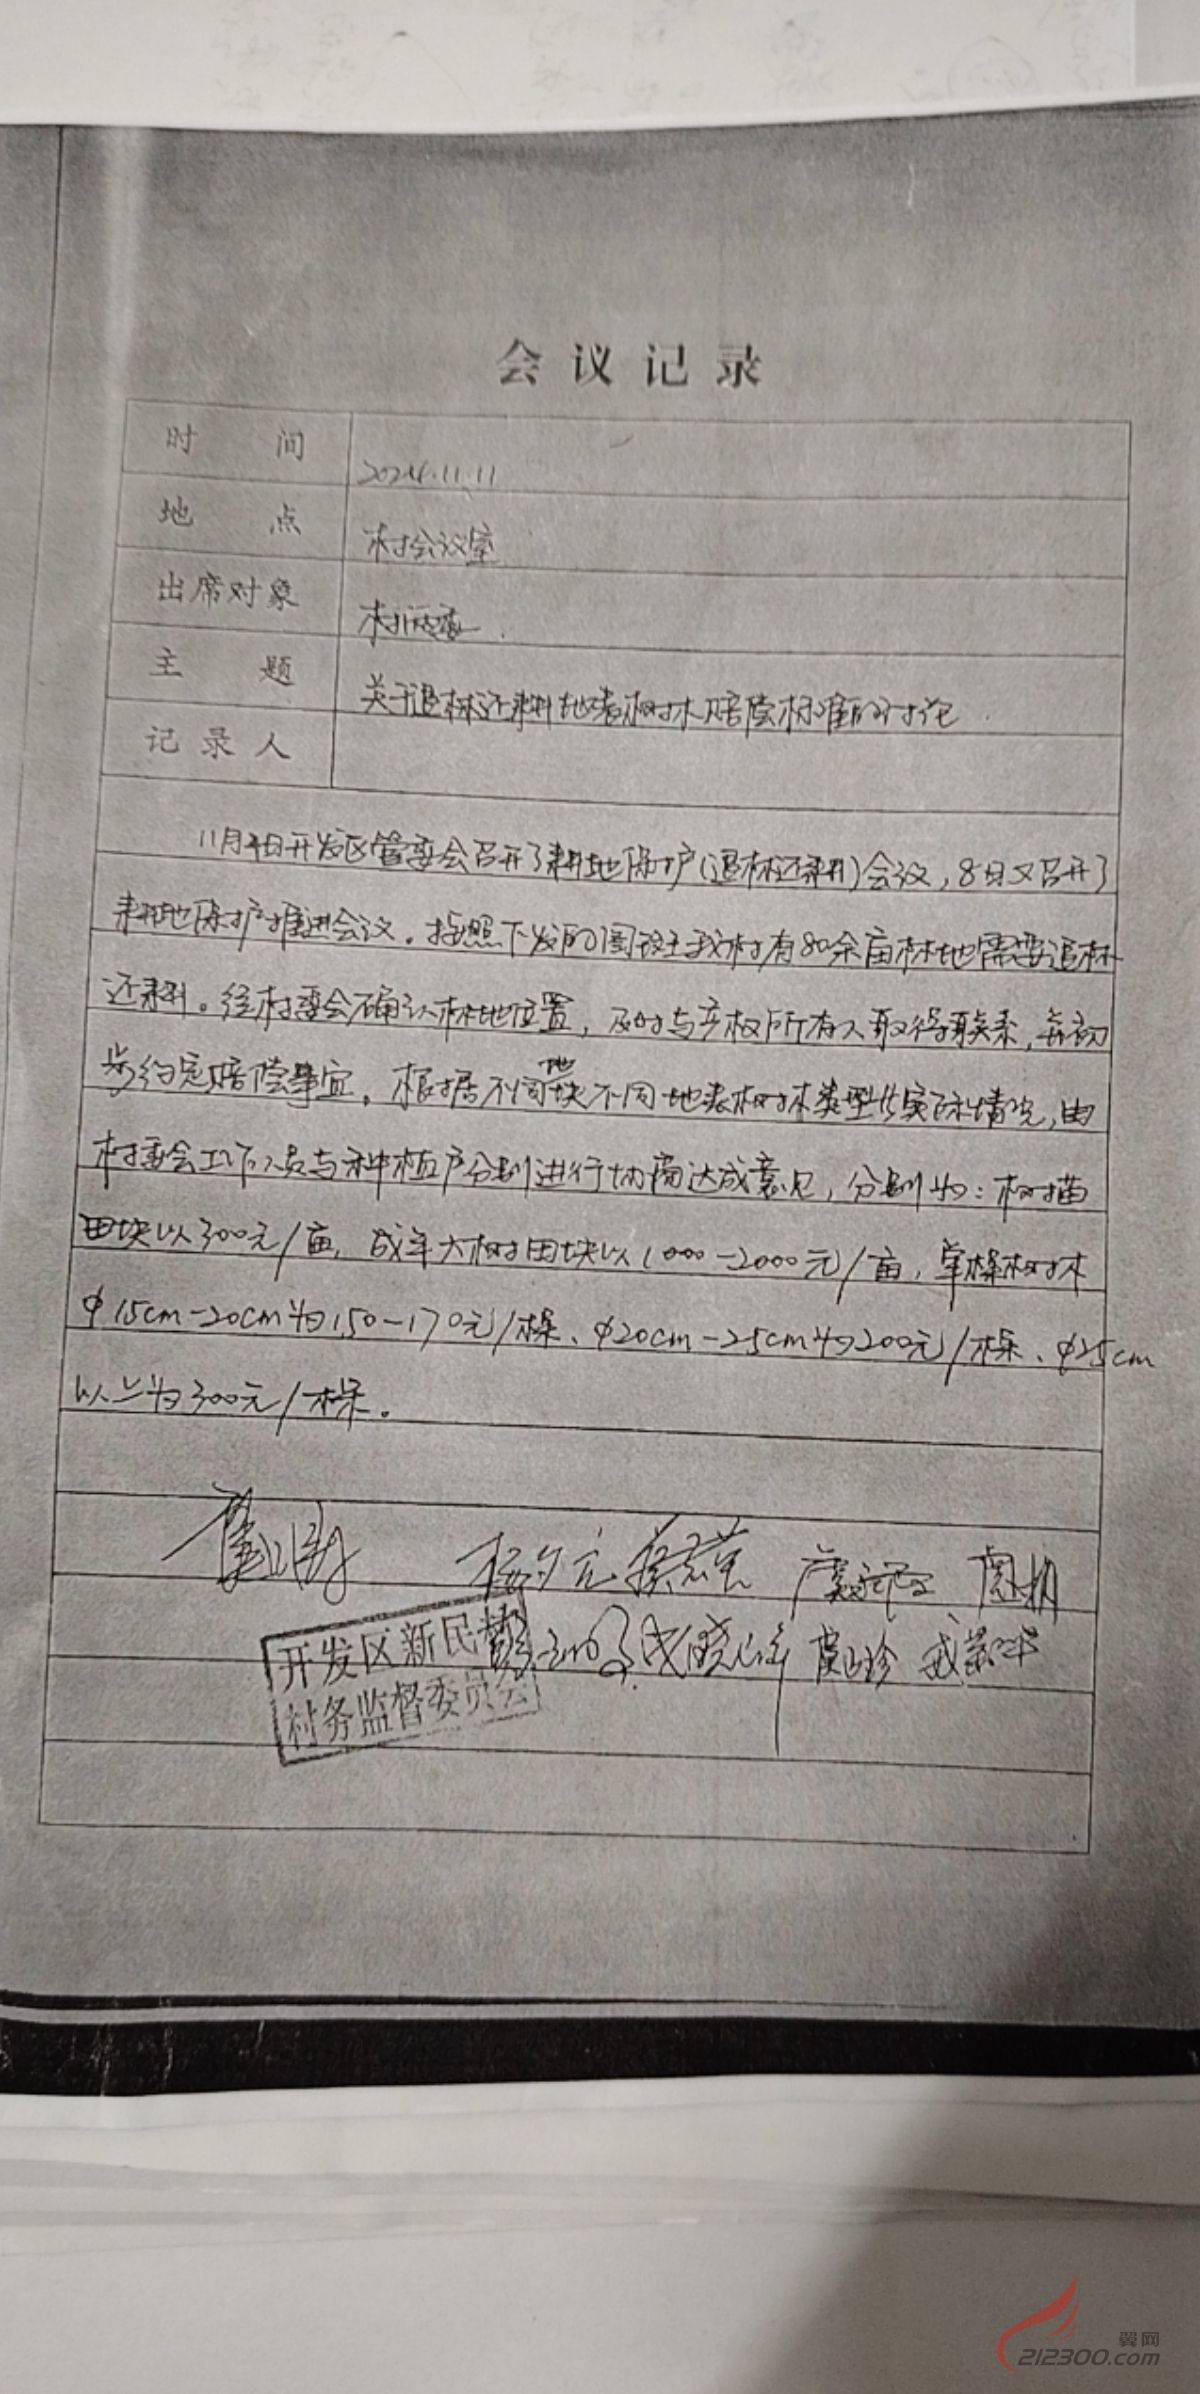 会议记录
时间 2024.11.11
地点 村会议室
出席对象 村两委
主题 关于退林还耕地表树木赔偿标准的讨论
记录人
11月4日开发区管委会召开了耕地保护(退林还耕)会议,8日又召开了
耕地保护推进会议。按照下发的图斑我村有80余亩林地需要退林
还耕。经村委会确认林地位置,及时与产权所有人取得联系,并初
步约定赔偿事宜。根据不同地块不同地表树木类型的实际情况,由
村委会工作人员与种植户分别进行协商达成意见,分别为:树苗
田块以300元/亩,成年大树田块以1000-2000元/亩,单棵树木
φ15cm-20cm为150-170元/棵、φ20cm-25cm为200元/棵、φ25cm
以上为300元/棵。
开发区新民村
村务监督委员会
翼网
212300.com